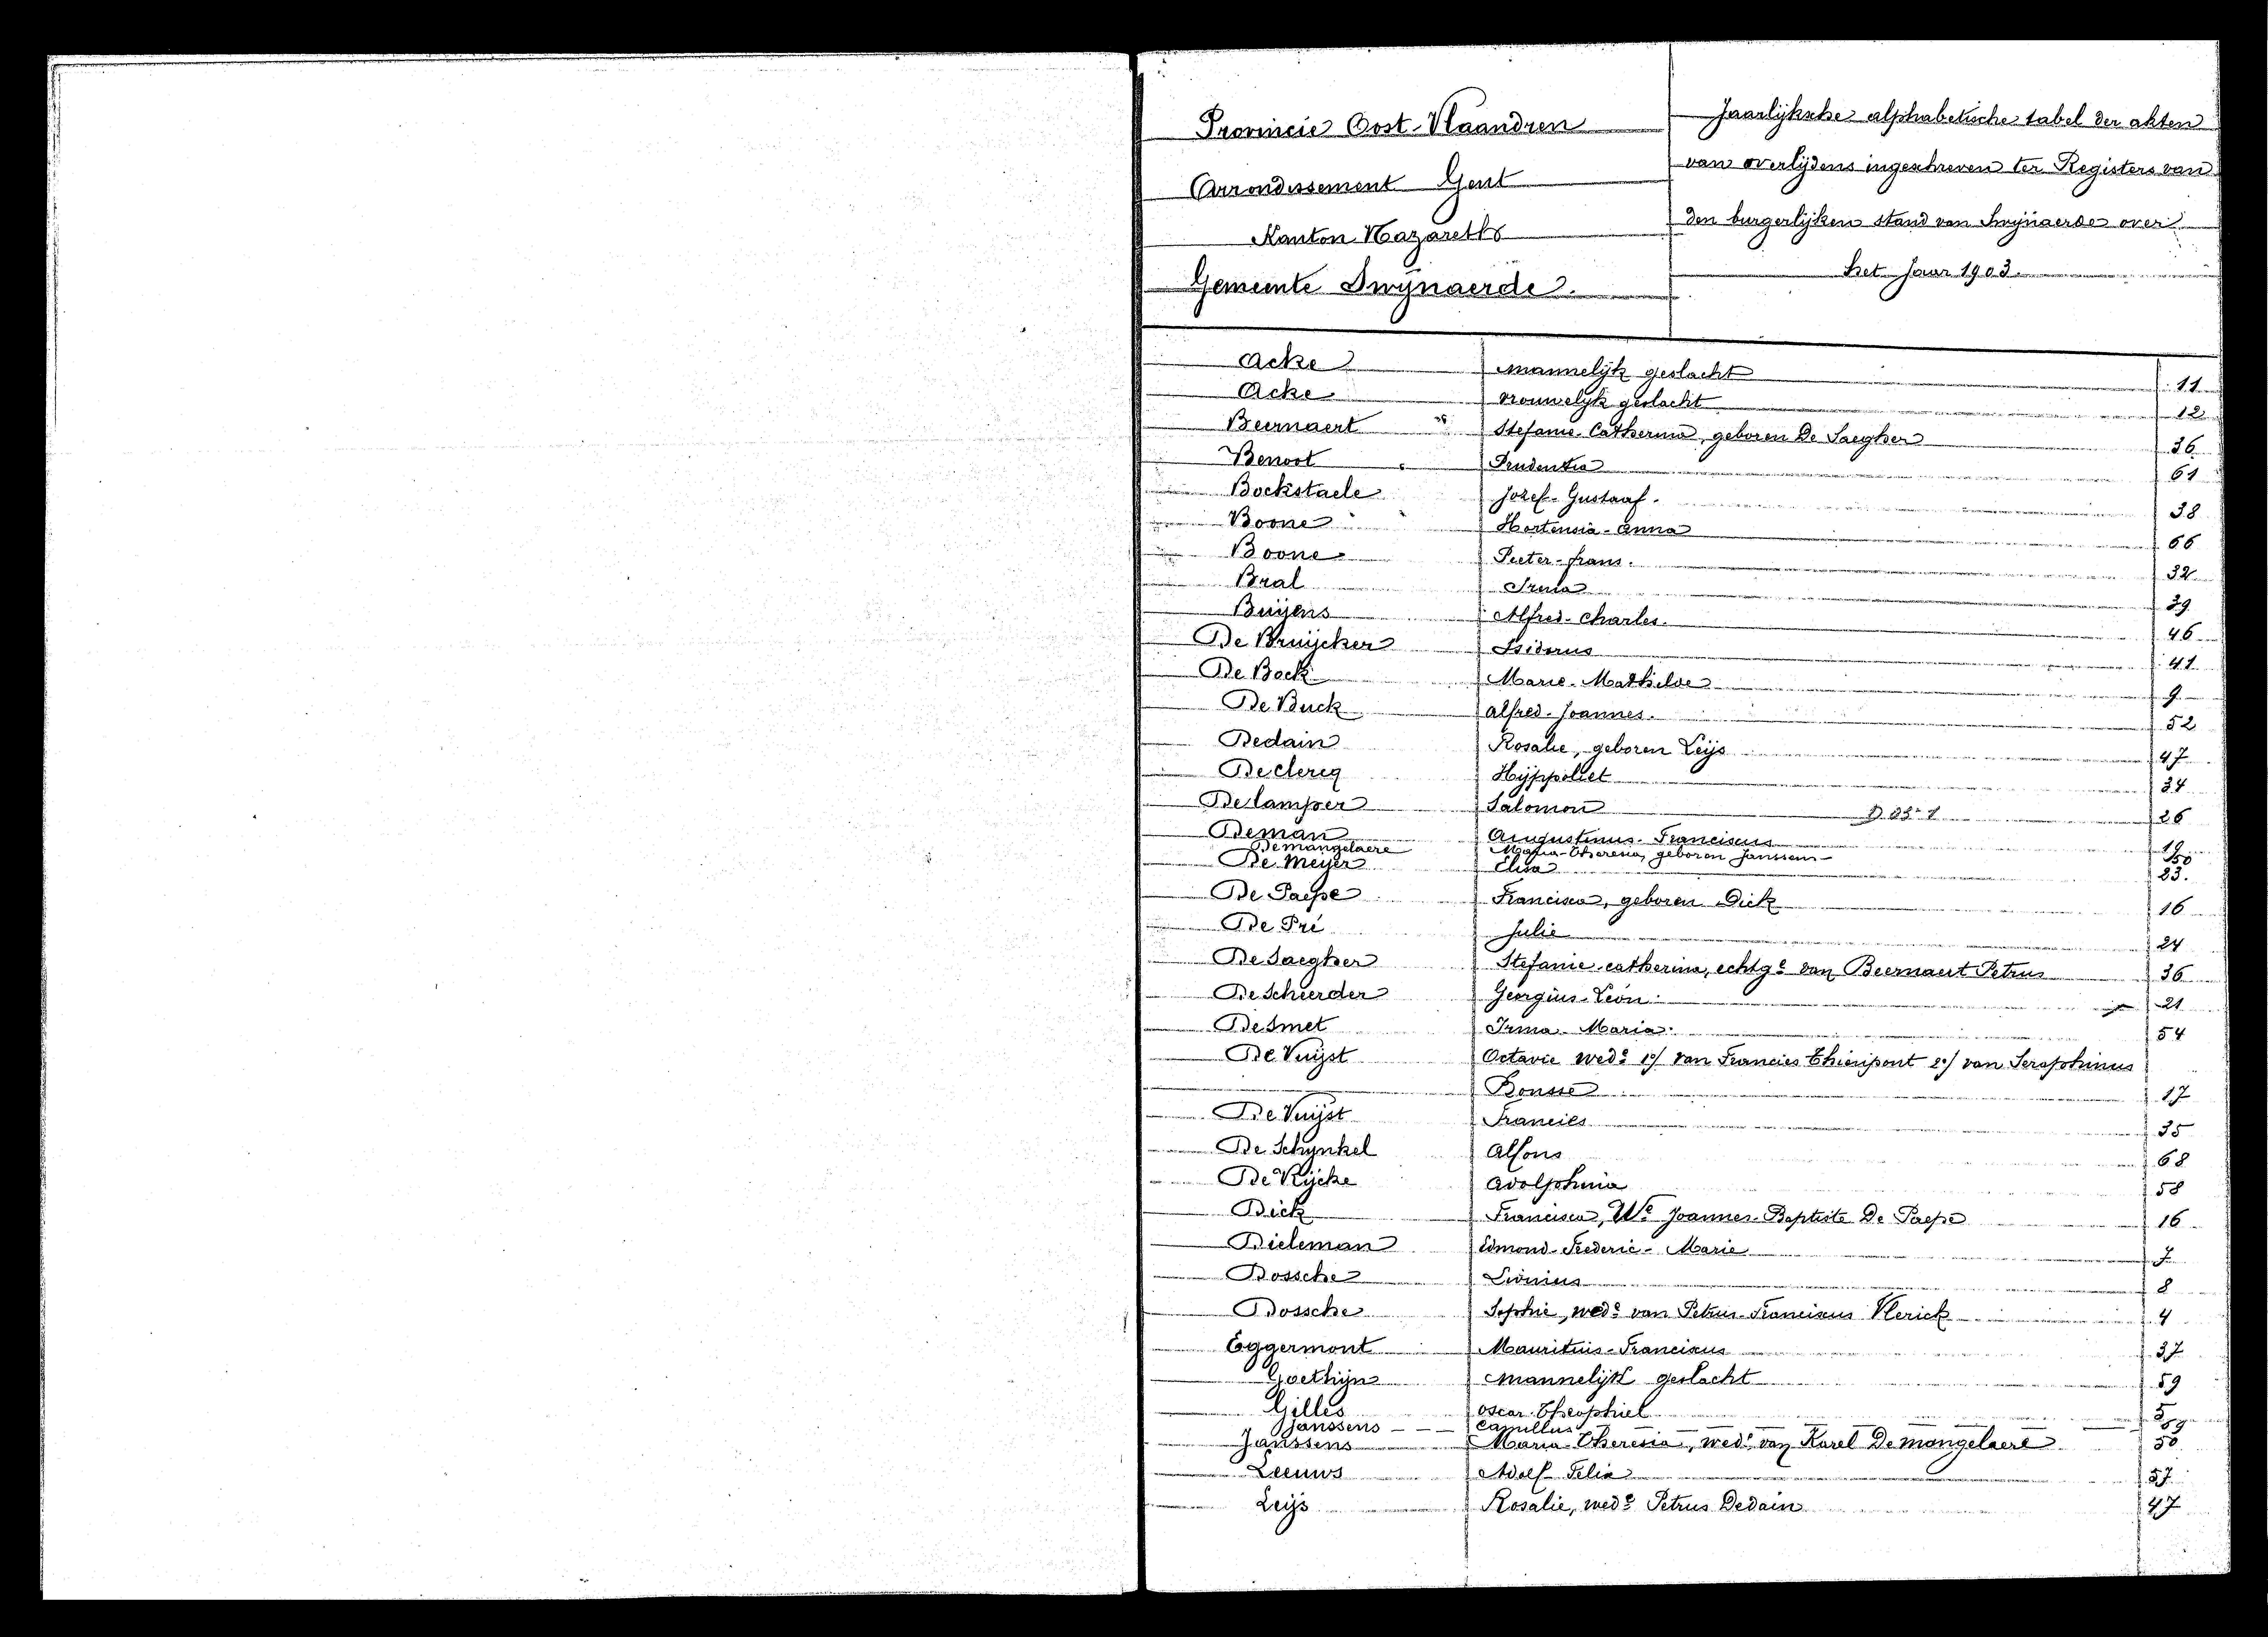 Provincie Oost-Vlaandren
Arrondissement Gent
Kanton Nazareth
Gemeente Swynaerde.
Jaarlijksche alphabetische tabel der akten
van overlijdens ingeschreven ter Registers van
den burgerlijken stand van Swynaerde over
het jaar 1903.
Acke mannelijk geslacht 11
Acke vrouwelijk geslacht 12
Beernaert Stefanie-Catherina, geboren De Saegher 36
Benoot Prudentia 61
Bockstaele Jozef-Gustaaf. 38
Boone Hortensia-Anna 66
Boone Peeter-frans. 32
Bral Irma 39
Buijens Alfred-Charles. 46
De Bruijcker Isidorus 41
De Bock Marie-Mathilde 9
De Buck Alfred-Joannes. 52
Dedain Rosalie, geboren Leijs 47
De Clercq Hijppoliet 34
Delamper Salomon 26
Deman Augustinus-Franciscus 19
Demangelaere Maria-Theresia, geboren Janssens 50
De Meijer Elisa 23.
De Paepe Francisca, geboren Dick 16
De Pré Julie 24
De Saegher Stefanie-catherina, echtge van Beernaert Petrus 36
De Scheerder Georgius-Léon. 21
Desmet Irma-Maria. 54
De Vuijst Octavie wede 1º/ van Francies Thienpont 2º/ van Seraphinus
Bousse 17
De Vuijst Francies 35
De Schynkel Alfons 68
De Rijcke Adolphina 58
Dick Francisca, We Joannes-Baptiste De Paepe 16
Dieleman Edmond-Frederic-Marie 7
Dossche Livinus 8
Dossche Sophie, wede van Petrus-Franciscus Vlerick 4
Eggermont Mauritius-Franciscus 37
Goethijn mannelijk geslacht 59
Gilles Oscar-Theophiel 5
Janssens Camillus 59
Janssens Maria-Theresia, wede van Karel Demangelaere 50
Leeuws Adolf-Felix 57
Leijs Rosalie, wede Petrus Dedain 47